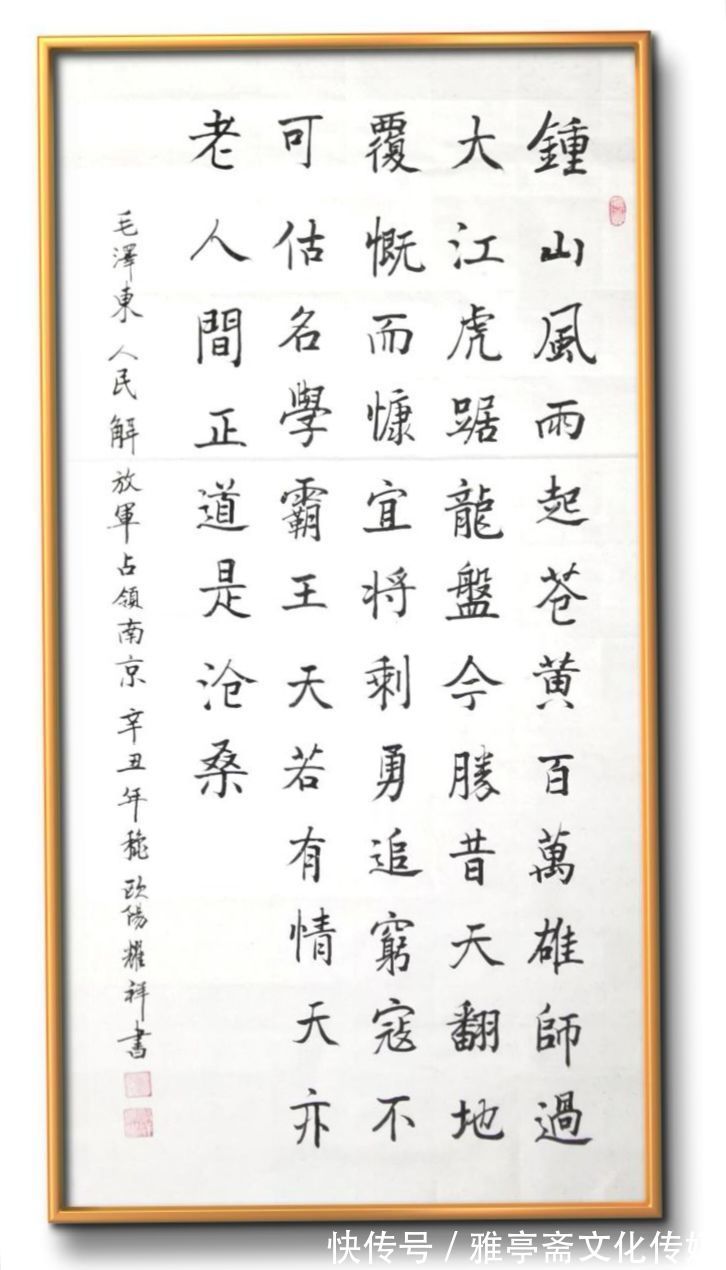 鍾山風雨起苍黄百萬雄師過
大江虎踞龍盤今勝昔天翻地
覆慨而慷宜将剩勇追窮寇不
可估名學霸王天若有情天亦
老人間正道是沧桑
毛澤東人民解放軍占領南京辛丑年秋歐陽耀祥書
快传号/雅亭斋文化传媒